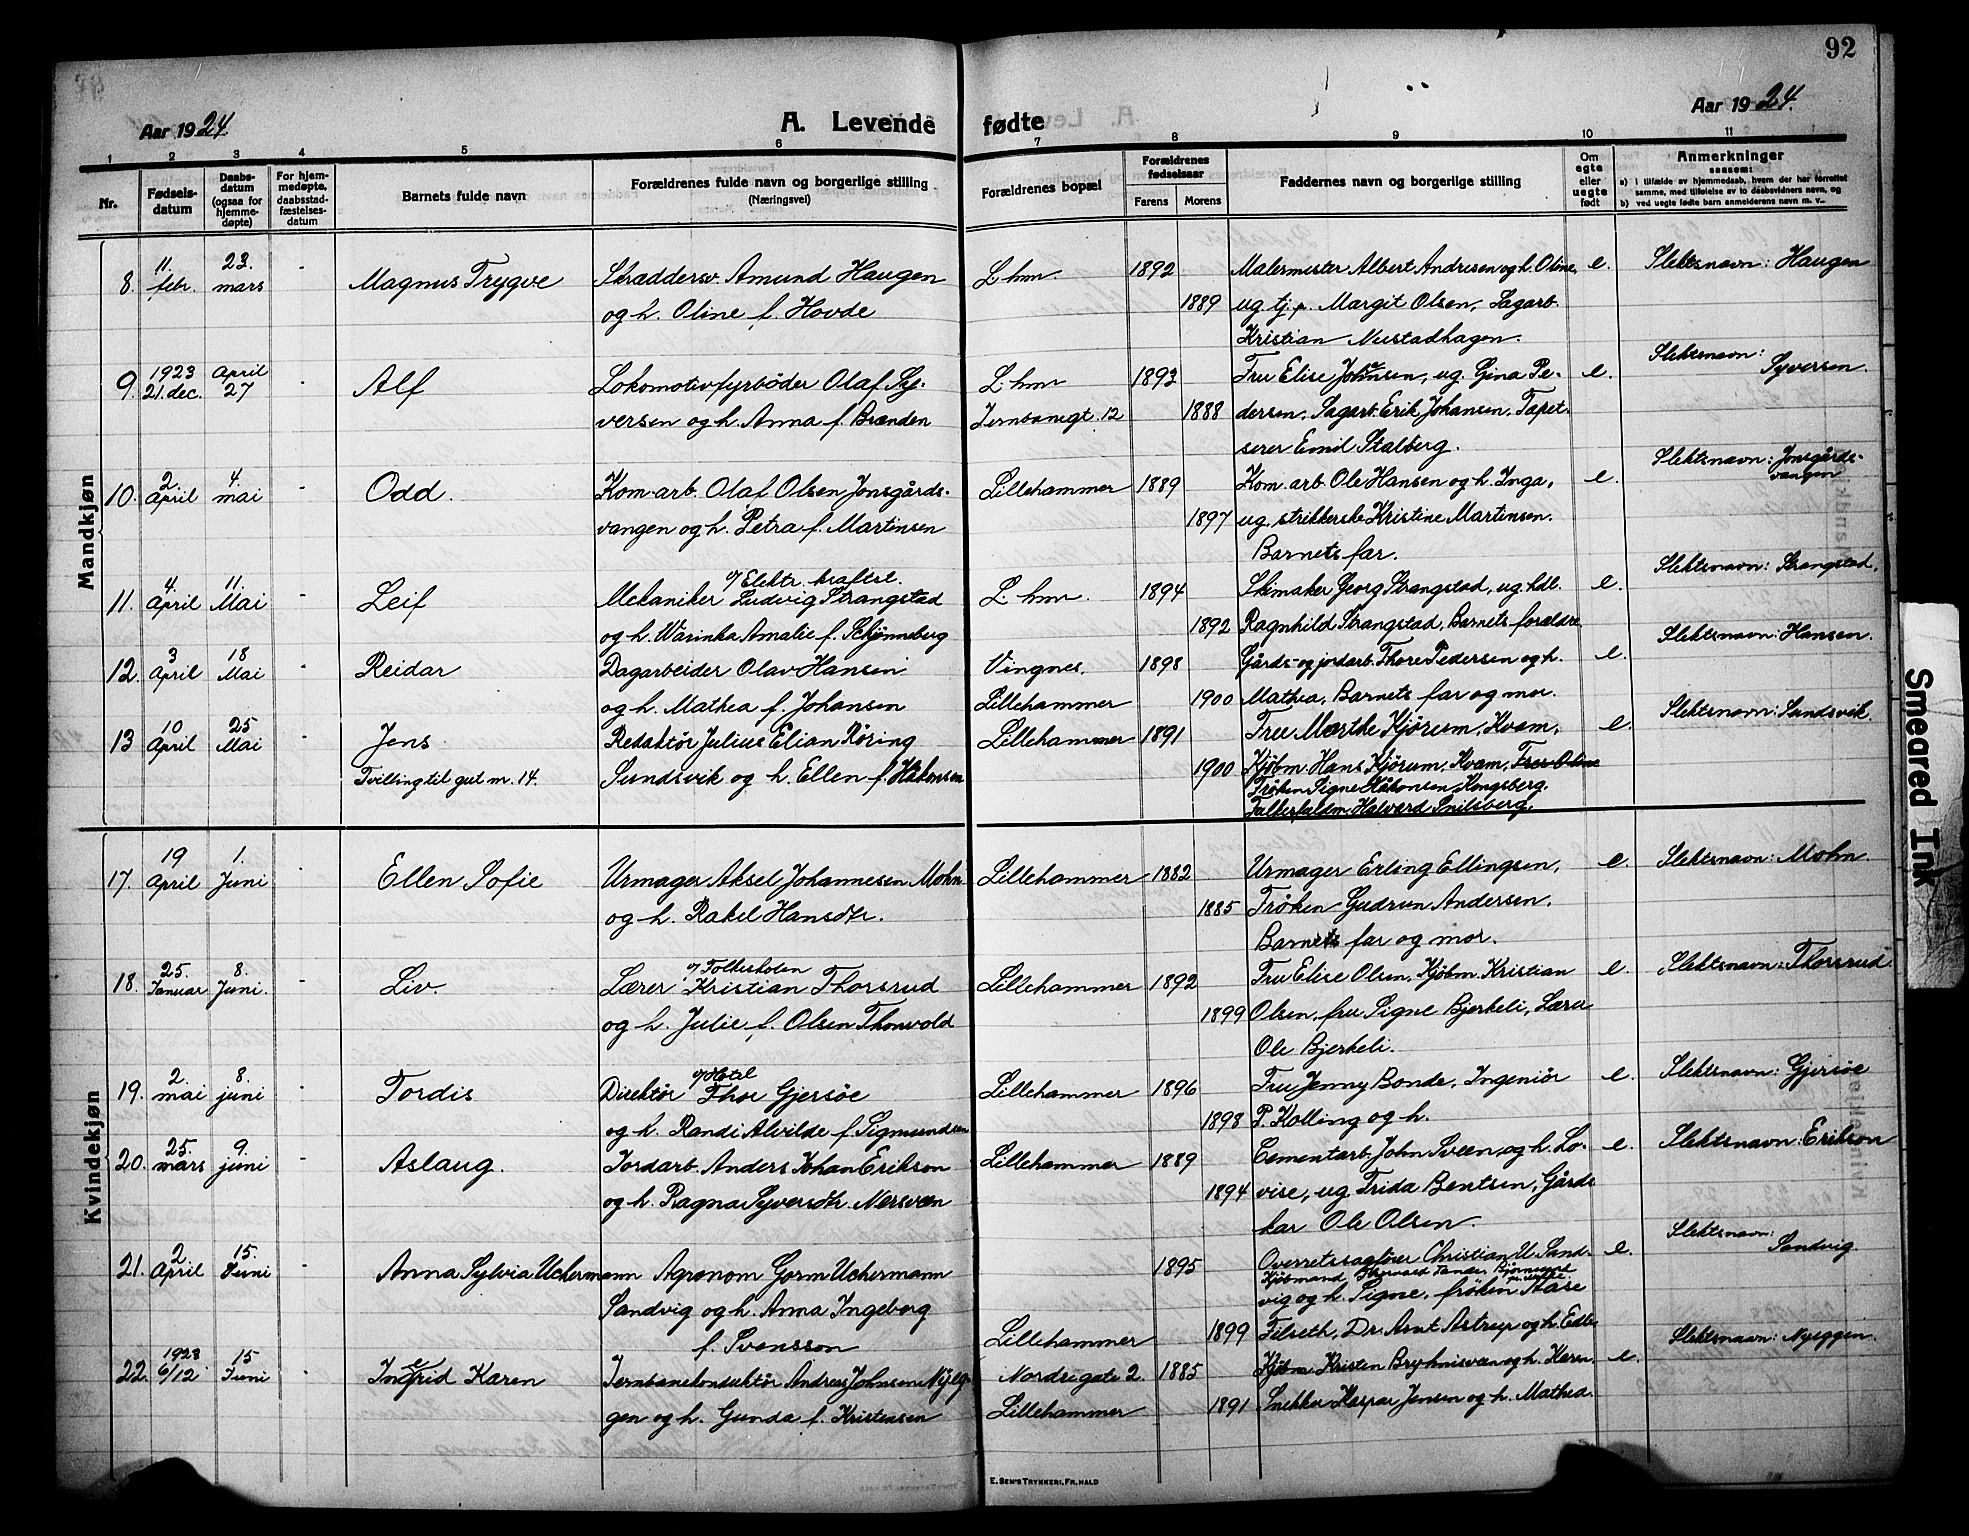 92
Aar 1924.
A. Levende fødte
Aar 1924.
1 2 3 4 5 6 7 8 9 10 11
Nr.
Fødsels-
datum
Daabs-
datum
(ogsaa for
hjemme-
døpte)
For hjem-
medøpte,
daabsstad-
fæstelses-
datum
Barnets fulde navn
Forældrenes fulde navn og borgerlige stilling
(Næringsvei)
Forældrenes bopæl
Forældrenes
fødselsaar
Farens Morens
Faddernes navn og borgerlige stilling
Om
egte
eller
uegte
født
Anmerkninger
saasom:
a) i tilfælde av hjemmedaab, hvem der har forrettet
samme, med tilføielse av to daabsvidners navn, og
b) ved uegte fødte barn anmelderens navn m. v.
Mandkjøn
8. 11. febr. 23. mars - Magnus Trygve Skræddersv. Amund Haugen L.hm. 1892 Malermester Albert Andresen og h. Oline, e. Slektsnavn: Haugen
og h. Oline f. Hovde 1889 ug. tj.p. Margit Olsen, Sagarb.
Kristian Neustadhagen.
9. 1923 21. dec. April 27 - Alf Lokomotivfyrbøder Olaf Sy- L.hm 1893 Fru Elise Johnsen, ug. Gina Pe- e. Slektsnavn: Syversen.
versen og h. Anna f. Brænden Jernbanegt. 12 1888 dersen, Sagarb. Erik Johansen, Tapet-
serer Emil Stalberg.
10. 2. April 4. mai - Odd. Kom-arb. Olaf Olsen Jonsgårds- Lillehammer 1889 Kom.arb. Ole Hansen og h. Inga, e. Slektsnavn: Jonsgårds-
vangen
vangen og h. Petra f. Martinsen 1897 ug. strikkerske Kristine Martinsen.
Barnets far.
11. 4. April 11. Mai - Leif Mekaniker v/ Elektr. kraftst. Ludvig Strangstad L.hm. 1894 Skimaker Georg Strangstad, ug. hdl. e. Slektsnavn: Strangstad.
og h. Warinka Amalie f. Schjønneberg 1892 Ragnhild Strangstad, Barnets forældre
12. 3 April 18 Mai - Reidar Dagarbeider Olav Hansen Vingnes. 1898 Gårds- og jordarb. Thore Pedersen og h. e. Slektsnavn: Hansen.
og h. Mathea f. Johansen Lillehammer 1900 Mathea, Barnets far og mor.
13 10 April 25 Mai - Jens Redaktør Julius Elian Röring Lillehammer 1891 Fru Marthe Kjørum, Kvam, e. Slektsnavn: Sundsvik
Tvilling til gut nr. 14. Sundsvik og h. Ellen f. Håkonsen 1900 Kjøbm. Hans Kjørum, Kvam, Fru Oline
Frøken Signe Håkonsen Kongsberg.
Halvard Snilsberg.
Kvindekjøn
17. 19 April 1. Juni - Ellen Sofie Urmager Aksel Johannesen Mohn Lillehammer 1882 Urmager Erling Ellingsen, e. Slektsnavn: Mohn.
og h. Rakel Hansdtr. 1885 Frøken Gudrun Andersen.
Barnets far og mor.
18. 25. Januar 8. Juni. - Liv. Lærer v/ Folkeskolen Kristian Thorsrud Lillehammer 1892 Fru Elise Olsen, Kjøbm. Kristian e. Slektsnavn: Thorsrud
og h. Julie f. Olsen Thonvold 1899 Olsen, fru Signe Bjerkeli, Lærer
Ole Bjerkeli.
19. 2. mai 8. juni - Tordis Direktør v/ Hotel Thor Gjersöe Lillehammer 1896 Fru Jenny Bonde, Ingeniör e. Slektsnavn: Gjersöe
og h. Randi Alvilde f. Sigmundsen 1898 P. Kolling og h.
20. 25. mars 9. juni - Aslaug. Jordarb. Anders Johan Erikson Lillehammer 1889 Cementarb. John Sveen og h. Lo- e. Slektsnavn: Erikson
og h. Ragna Syversdtr. Nersveen 1894 vise, ug. Frida Bentsen, Gårds
kar Ole Olsen.
21. 2 April 15. Juni - Anna Sylvia Uchermann Agronom Gorm Uchermann 1895 Overretssagfører Christian U. Sand- e. Slektsnavn: Sandvig.
Kjøbmand
Sandvig og h. Anna Ingeborg vig og h. Signe, frøken Aase
f. Svensson Lillehammer 1899 Filseth, Dr. Arnt Astrup og h.
22. 1923 6/12 15 Juni - Ingfrid Karen Jernbanekonduktør Andreas Johnsen Nyeg- Nordregate 2. 1885 Kjøbm. Kristen Bryhnisveen og h. Karen, e. Slektsnavn: Nyeggen.
gen og h. Gunda f. Kristensen Lillehammer 1891 Snekker Kaspar Jensen og h. Mathea.
E. SEM'S TRYKKERI, FR.HALD
Smeared Ink